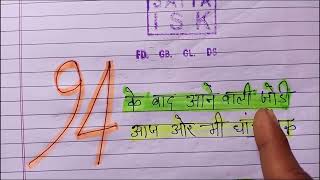 SATTA
ISK
FD. GB. GL. DS
94
के बाद आने वाली जोडी
आज ओर भी धां क